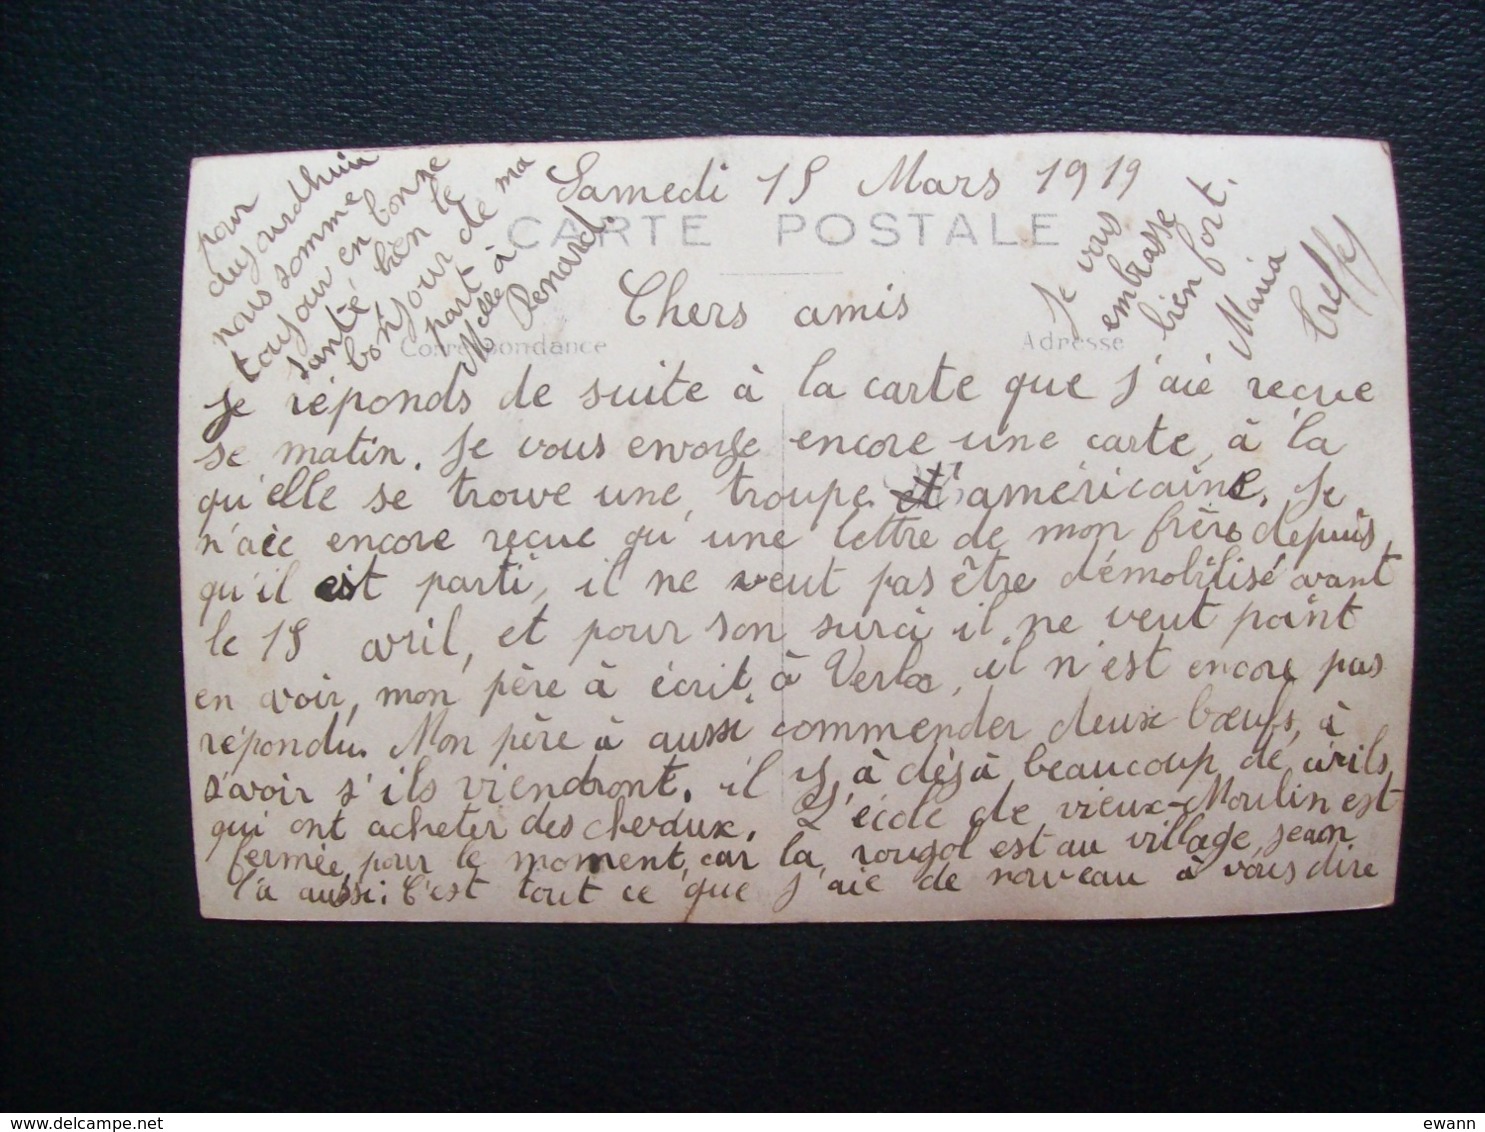 Samedi 15 Mars 1919
CARTE POSTALE
Chers amis
Correspondance
Adresse
Je réponds de suite à la carte que j'aie reçue
se matin. Je vous envoye encore une carte, à la
qu'elle se trouve une, troupe américaine. Je
n'aie encore reçue qu'une lettre de mon frère depuis,
qu'il est parti, il ne veut pas être démobilisé avant
le 15 avril, et pour son surci il ne veut point
en avoir, mon père à écrit, à Verla, il n'est encore pas
répondu. Mon père à aussi commender deux bœufs, à
savoir s'ils viendront. il y, à dèjà, beaucoup de civils,
qui ont acheter des chevaux. L'école de vieux-Moulin est
fermée, pour le moment, car la rougol est au village, Jean
l'a aussi. C'est tout ce que j'aie de nouveau à vous dire
pour
aujourdhui
nous somme
toujour en bonne
santé bien le
bonjour de ma
part à
Melle
Renard.
Je vous
embrasse
bien fort.
Maria
Treffey
delcampe.net
ewann